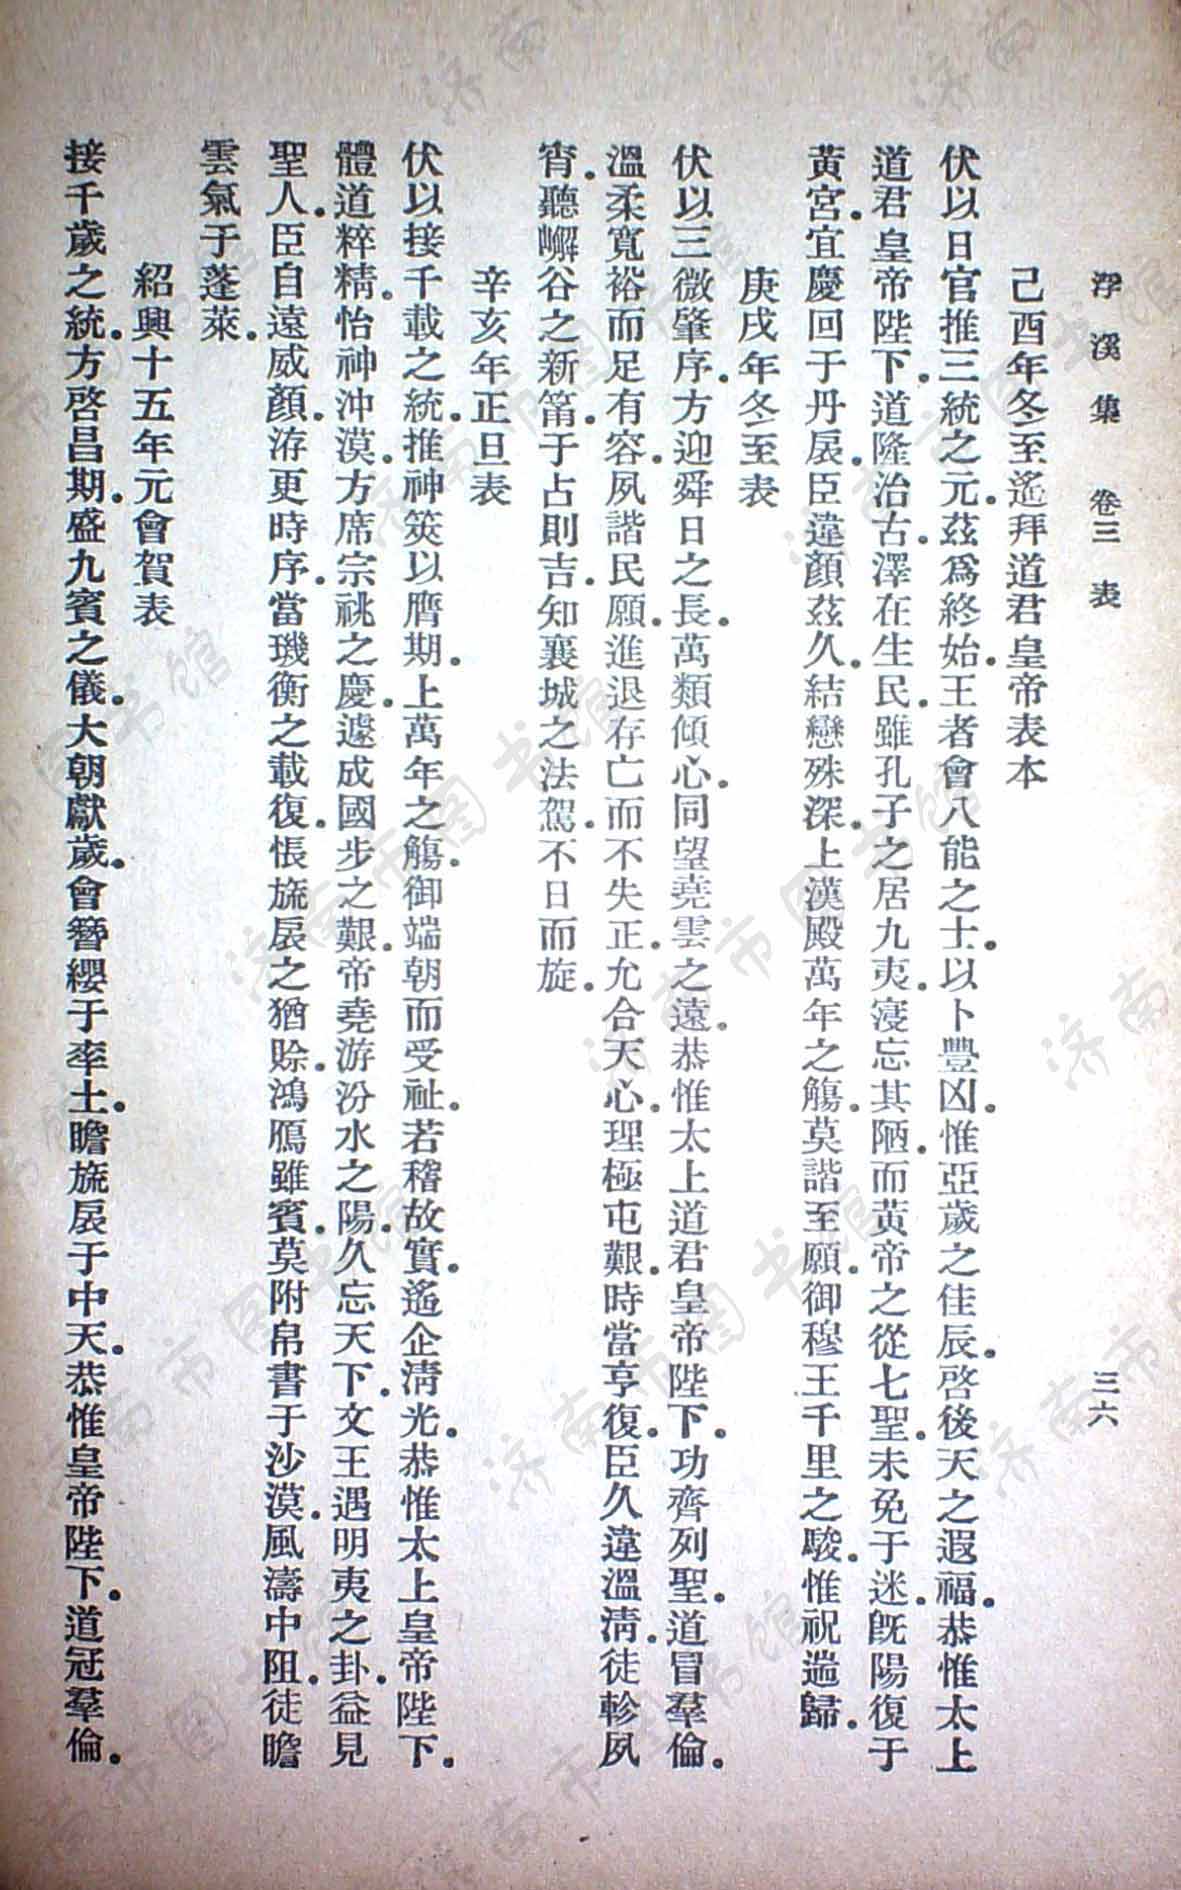 浮溪集 卷三 表 三六
己酉年冬至遙拜道君皇帝表本
伏以日官推三統之元。茲爲終始。王者會八能之士。以卜豐凶。惟亞歲之佳辰。啓後天之遐福。恭惟太上
道君皇帝陛下。道隆治古。澤在生民。雖孔子之居九夷。寖忘其陋。而黃帝之從七聖。未免于迷。旣陽復于
黃宮。宜慶回于丹扆。臣違顏茲久。結戀殊深。上漢殿萬年之觴。莫諧至願。御穆王千里之駿。惟祝遄歸。
庚戌年冬至表
伏以三微肇序。方迎舜日之長。萬類傾心。同望堯雲之遠。恭惟太上道君皇帝陛下。功齊列聖。道冒羣倫。
溫柔寬裕而足有容。夙諧民願。進退存亡而不失正。允合天心。理極屯艱。時當亨復。臣久違溫凊。徒軫夙
宵。聽嶰谷之新筩。于占則吉。知襄城之法駕。不日而旋。
辛亥年正旦表
伏以接千載之統。推神筴以膺期。上萬年之觴。御端朝而受祉。若稽故實。遙企淸光。恭惟太上皇帝陛下。
體道粹精。怡神沖漠。方席宗祧之慶。遽成國步之艱。帝堯游汾水之陽。久忘天下。文王遇明夷之卦。益見
聖人。臣自遠威顏。洊更時序。當璣衡之載復。悵旒扆之猶賒。鴻鴈雖賓。莫附帛書于沙漠。風濤中阻。徒瞻
雲氣于蓬萊。
紹興十五年元會賀表
接千歲之統。方啓昌期。盛九賓之儀。大朝獻歲。會簪纓于率土。瞻旒扆于中天。恭惟皇帝陛下。道冠羣倫。
济南市图书馆